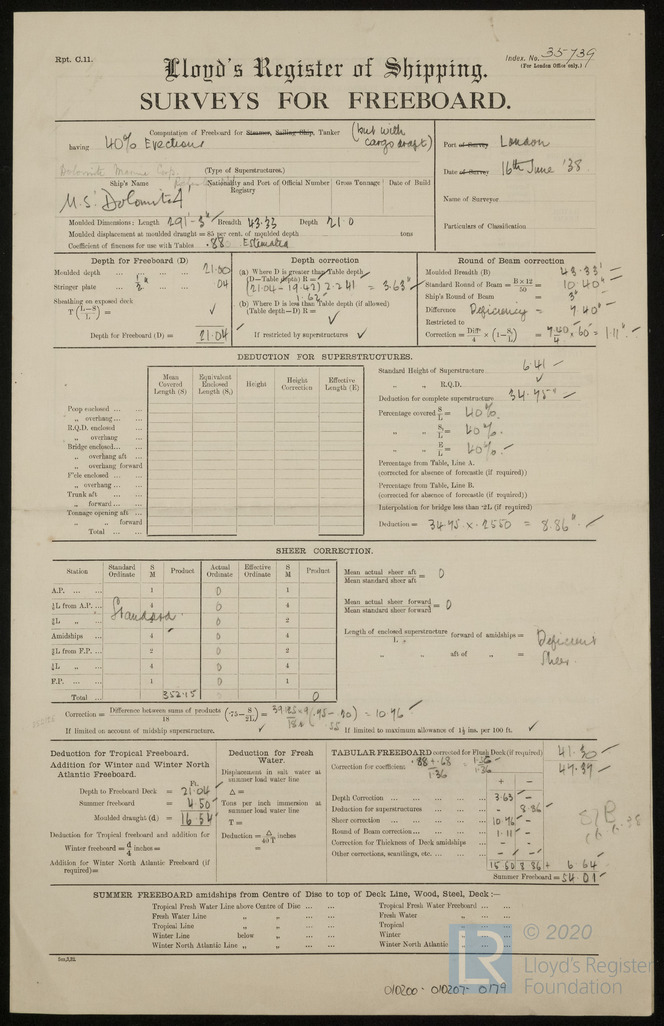 Rpt. C.11.
Index. No. 35739
(For London Office only.)
Lloyd's Register of Shipping.
SURVEYS FOR FREEBOARD.
Computation of Freeboard for Steamer, Sailing Ship, Tanker (but with cargo draft)
having 40% Erections
Port of Survey London
Date of Survey 16th June '38
Name of Surveyor
Particulars of Classification
(Type of Superstructures.)
Ship's Name
Nationality and Port of Registry
Official Number
Gross Tonnage
Date of Build
M.S. Dolomite 4
Moulded Dimensions: Length 291'-3" Breadth 43.33 Depth 21.0
Moulded displacement at moulded draught = 85 per cent. of moulded depth tons
Coefficient of fineness for use with Tables .88 Estimated
Depth for Freeboard (D)
Moulded depth ... ... ... 21.00
Stringer plate ... ... .04
Sheathing on exposed deck
T (L−S / L) = ✓
Depth for Freeboard (D) = 21.04
Depth correction
(a) Where D is greater than Table depth
(D—Table depth) R =
(21.04 - 19.42) 2.241 = 3.63"
1.62
(b) Where D is less than Table depth (if allowed)
(Table depth—D) R =
✓
If restricted by superstructures ✓
Round of Beam correction
Moulded Breadth (B) 43.33'
Standard Round of Beam = B × 12 / 50 = 10.40"
Ship's Round of Beam = 3"
Difference Deficiency = 7.40"
Restricted to
Correction = Diff / 4 × (1 − S/L) = 7.40/4 × .60 = 1.11"
DEDUCTION FOR SUPERSTRUCTURES.
Mean Covered Length (S)
Equivalent Enclosed Length (S₁)
Height
Height Correction
Effective Length (E)
Poop enclosed ... ...
„ overhang ...
R.Q.D. enclosed
„ overhang
Bridge enclosed... ...
„ overhang aft ...
„ overhang forward
F'cle enclosed ... ...
„ overhang ... ...
Trunk aft ... ...
„ forward ... ...
Tonnage opening aft ...
„ „ forward
Total ... ...
Standard Height of Superstructure 6.41
„ „ R.Q.D. ✓
Deduction for complete superstructure 34.75"
Percentage covered S/L = 40%
„ „ S₁/L = 40%
„ „ E/L = 40%
Percentage from Table, Line A.
(corrected for absence of forecastle (if required))
Percentage from Table, Line B.
(corrected for absence of forecastle (if required))
Interpolation for bridge less than ·2L (if required)
Deduction = 34.75 × .2550 = 8.86"
SHEER CORRECTION.
Station
Standard Ordinate
S M
Product
Actual Ordinate
Effective Ordinate
S M
Product
A.P. ... ... 1 0 1
⅙L from A.P. ... 4 0 4
⅓L „ 2 0 2
Amidships 4 0 4
⅓L from F.P. ... 2 0 2
⅙L „ 4 0 4
F.P. ... ... 1 0 1
Standard
Total ... 352.15 0
Mean actual sheer aft / Mean standard sheer aft = 0
Mean actual sheer forward / Mean standard sheer forward = 0
Length of enclosed superstructure forward of amidships = Deficient
L
„ „ aft of „ = Sheer
Correction = Difference between sums of products / 18 (·75 − S/2L) = = 10.76
If limited on account of midship superstructure. ✓
If limited to maximum allowance of 1½ ins. per 100 ft. ✓
Deduction for Tropical Freeboard.
Addition for Winter and Winter North Atlantic Freeboard.
Ft.
Depth to Freeboard Deck = 21.04
Summer freeboard = 4.50
Moulded draught (d) = 16.54
Deduction for Tropical freeboard and addition for
Winter freeboard = d/4 inches =
Addition for Winter North Atlantic Freeboard (if required) =
Deduction for Fresh Water.
Displacement in salt water at summer load water line
Δ =
Tons per inch immersion at summer load water line
T =
Deduction = Δ / 40 T inches
=
TABULAR FREEBOARD corrected for Flush Deck (if required) 41.30
Correction for coefficient .88 + .68 / 1.36 = 1.56 / 1.36 47.37
+ −
Depth Correction ... ... ... 3.63 −
Deduction for superstructures ... − 8.86
Sheer correction ... ... ... 10.76 −
Round of Beam correction... ... 1.11 −
Correction for Thickness of Deck amidships − −
Other corrections, scantlings, etc. ... − −
15.50 8.86 + 6.64
Summer Freeboard = 54.01
SUMMER FREEBOARD amidships from Centre of Disc to top of Deck Line, Wood, Steel, Deck :—
Tropical Fresh Water Line above Centre of Disc ... ...
Fresh Water Line „ „ ... ...
Tropical Line „ „ ... ...
Winter Line below „ ... ...
Winter North Atlantic Line „ „ ... ...
Tropical Fresh Water Freeboard ... ...
Fresh Water „ ... ...
Tropical „ ... ...
Winter „ ... ...
Winter North Atlantic „ ... ...
© 2020
Lloyd's Register
Foundation
010200-010207-0179